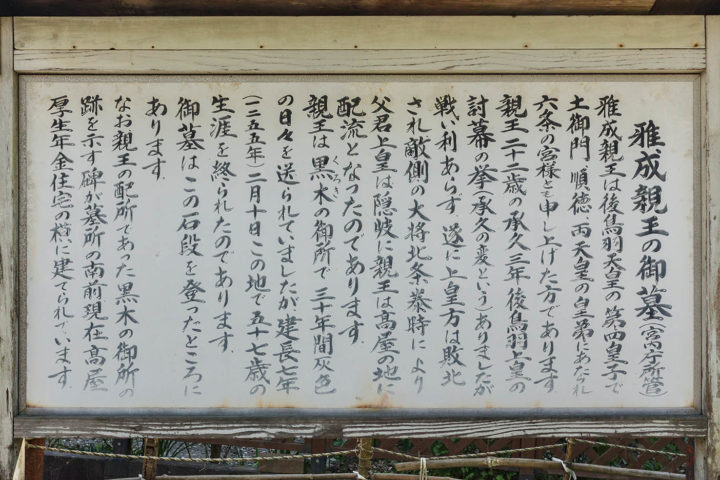 雅成親王の御墓（宮内庁所管）
雅成親王は後鳥羽天皇の第四皇子で
土御門、順徳、両天皇の皇弟にあたられ
六条の宮様とも申し上げた方であります。
親王二十二歳の承久三年、後鳥羽上皇の
討幕の挙（承久の変という）ありましたが
戦い利あらず、遂に上皇方は敗北
され敵側の大将北条泰時により
父君上皇は隠岐に親王は高屋の地に
配流となったのであります。
親王は黒木の御所で三十年間灰色
くろき
の日々を送られていましたが建長七年
（一二五五年）二月十日この地で五十七歳の
生涯を終られたのであります。
御墓はこの石段を登ったところに
あります。
なお親王の配所であった黒木の御所の
跡を示す碑が墓所の南前現在高屋
厚生年金住宅の横に建てられています。